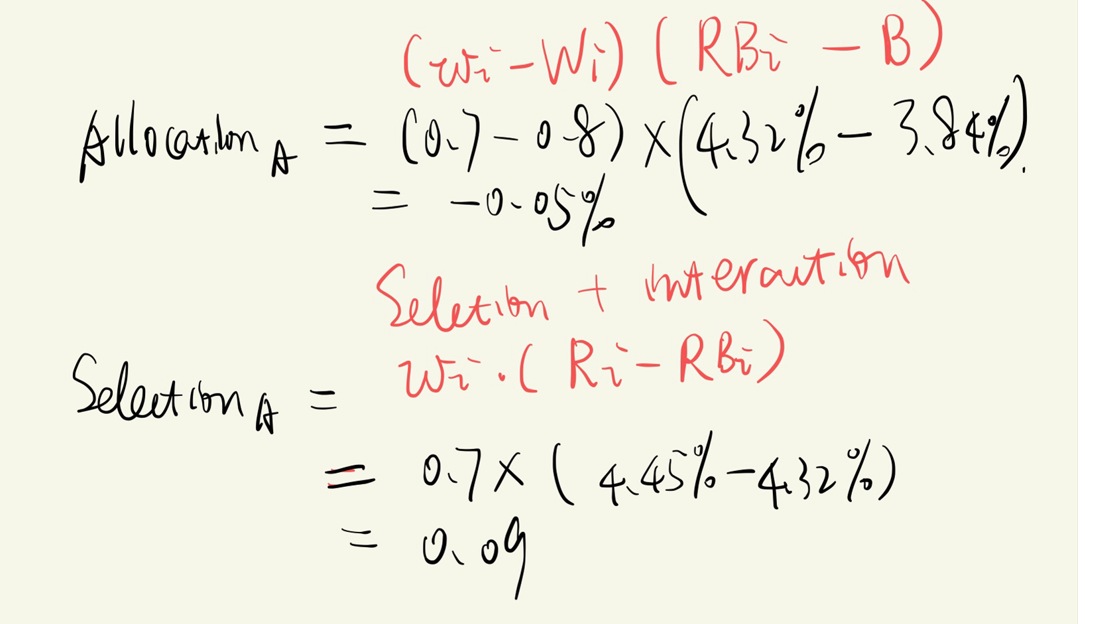 (wi-Wi) (RBi - B)
Allocation A = (0.7 - 0.8) × (4.32% - 3.84%).
= -0.05%
Seletion + interaction
Selection A = wi · (Ri - RBi)
= 0.7 × (4.45% - 4.32%)
= 0.09